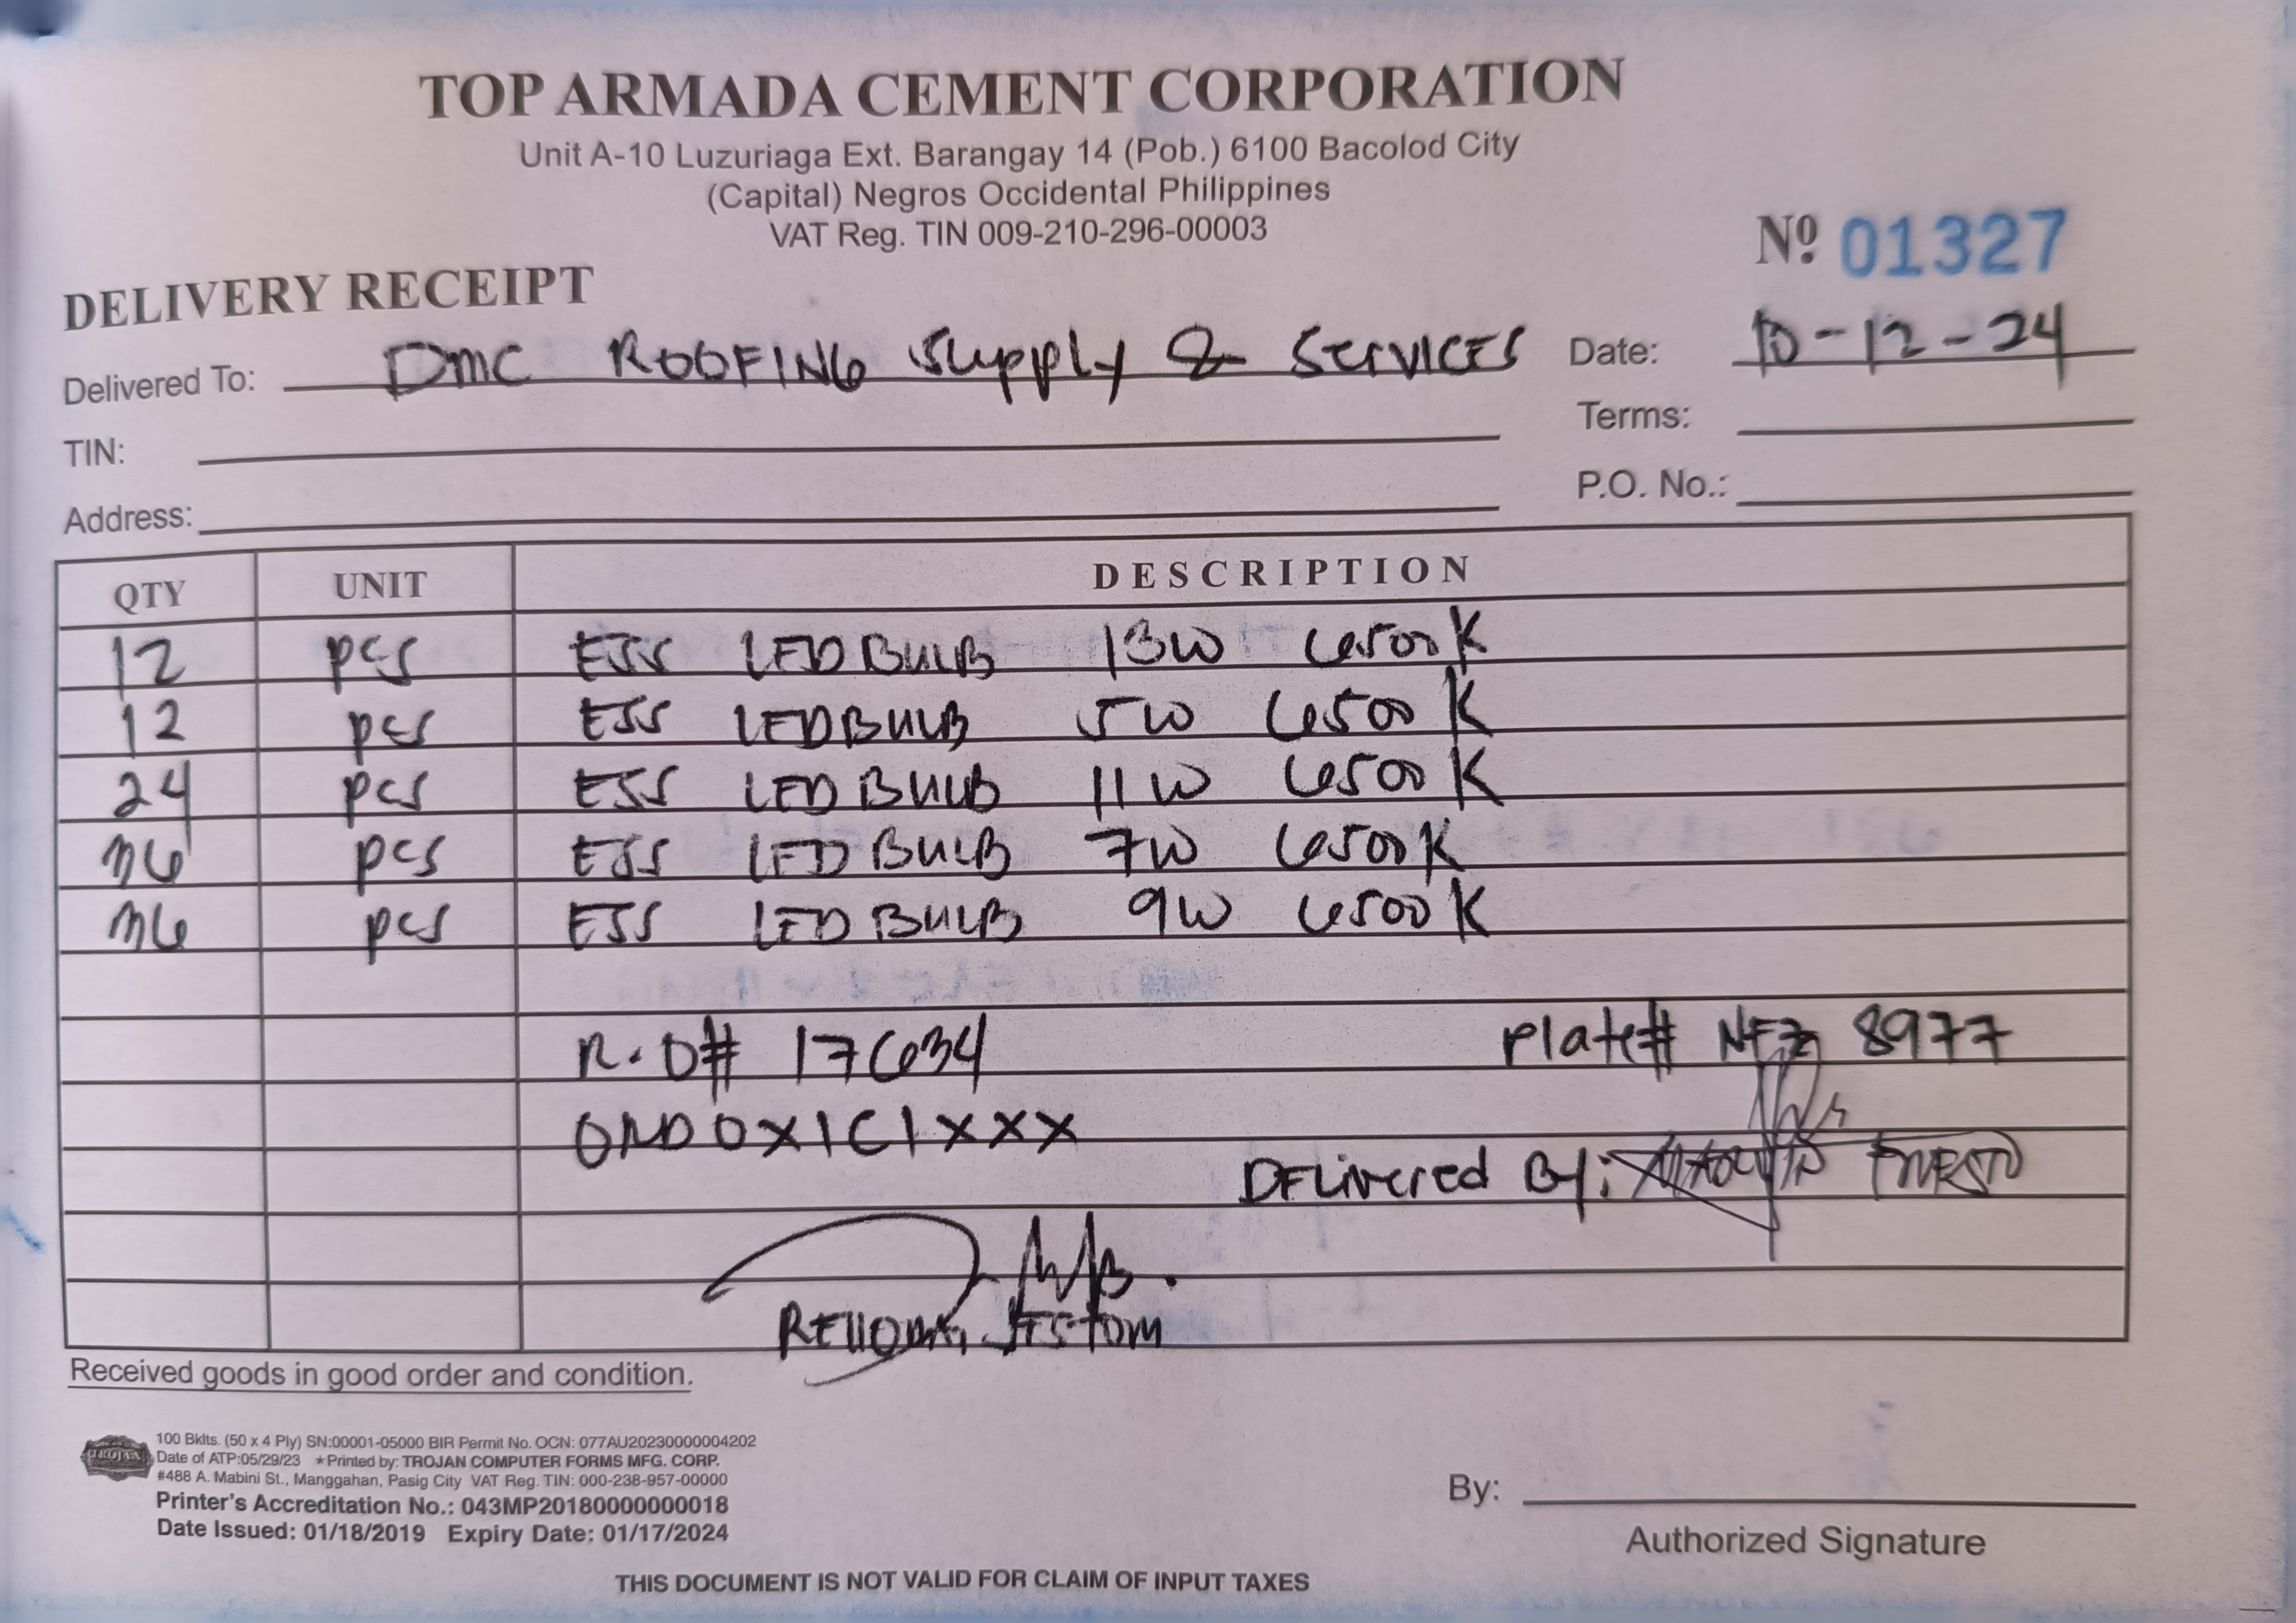 TOP ARMADA CEMENT CORPORATION
Unit A-10 Luzuriaga Ext. Barangay 14 (Pob.) 6100 Bacolod City
(Capital) Negros Occidental Philippines
VAT Reg. TIN 009-210-296-00003
Nº 01327
DELIVERY RECEIPT
Delivered To: DMC ROOFING Supply & SERVICES Date: 10-12-24
TIN: Terms:
Address: P.O. No.:
QTY UNIT DESCRIPTION
12 pcs ESS LED BULB 13W 6500K
12 pcs ESS LED BULB 5W 6500K
24 pcs ESS LED BULB 11W 6500K
36 pcs ESS LED BULB 7W 6500K
36 pcs ESS LED BULB 9W 6500K
R.O# 17634 Plate# NFZ 8977
0ND0X1C1XXX
DELivered By:
Received goods in good order and condition.
TROJAN
100 Bklts. (50 x 4 Ply) SN:00001-05000 BIR Permit No. OCN: 077AU20230000004202
Date of ATP:05/29/23 ★Printed by: TROJAN COMPUTER FORMS MFG. CORP.
#488 A. Mabini St., Manggahan, Pasig City VAT Reg. TIN: 000-238-957-00000
Printer's Accreditation No.: 043MP20180000000018
Date Issued: 01/18/2019 Expiry Date: 01/17/2024
By:
Authorized Signature
THIS DOCUMENT IS NOT VALID FOR CLAIM OF INPUT TAXES